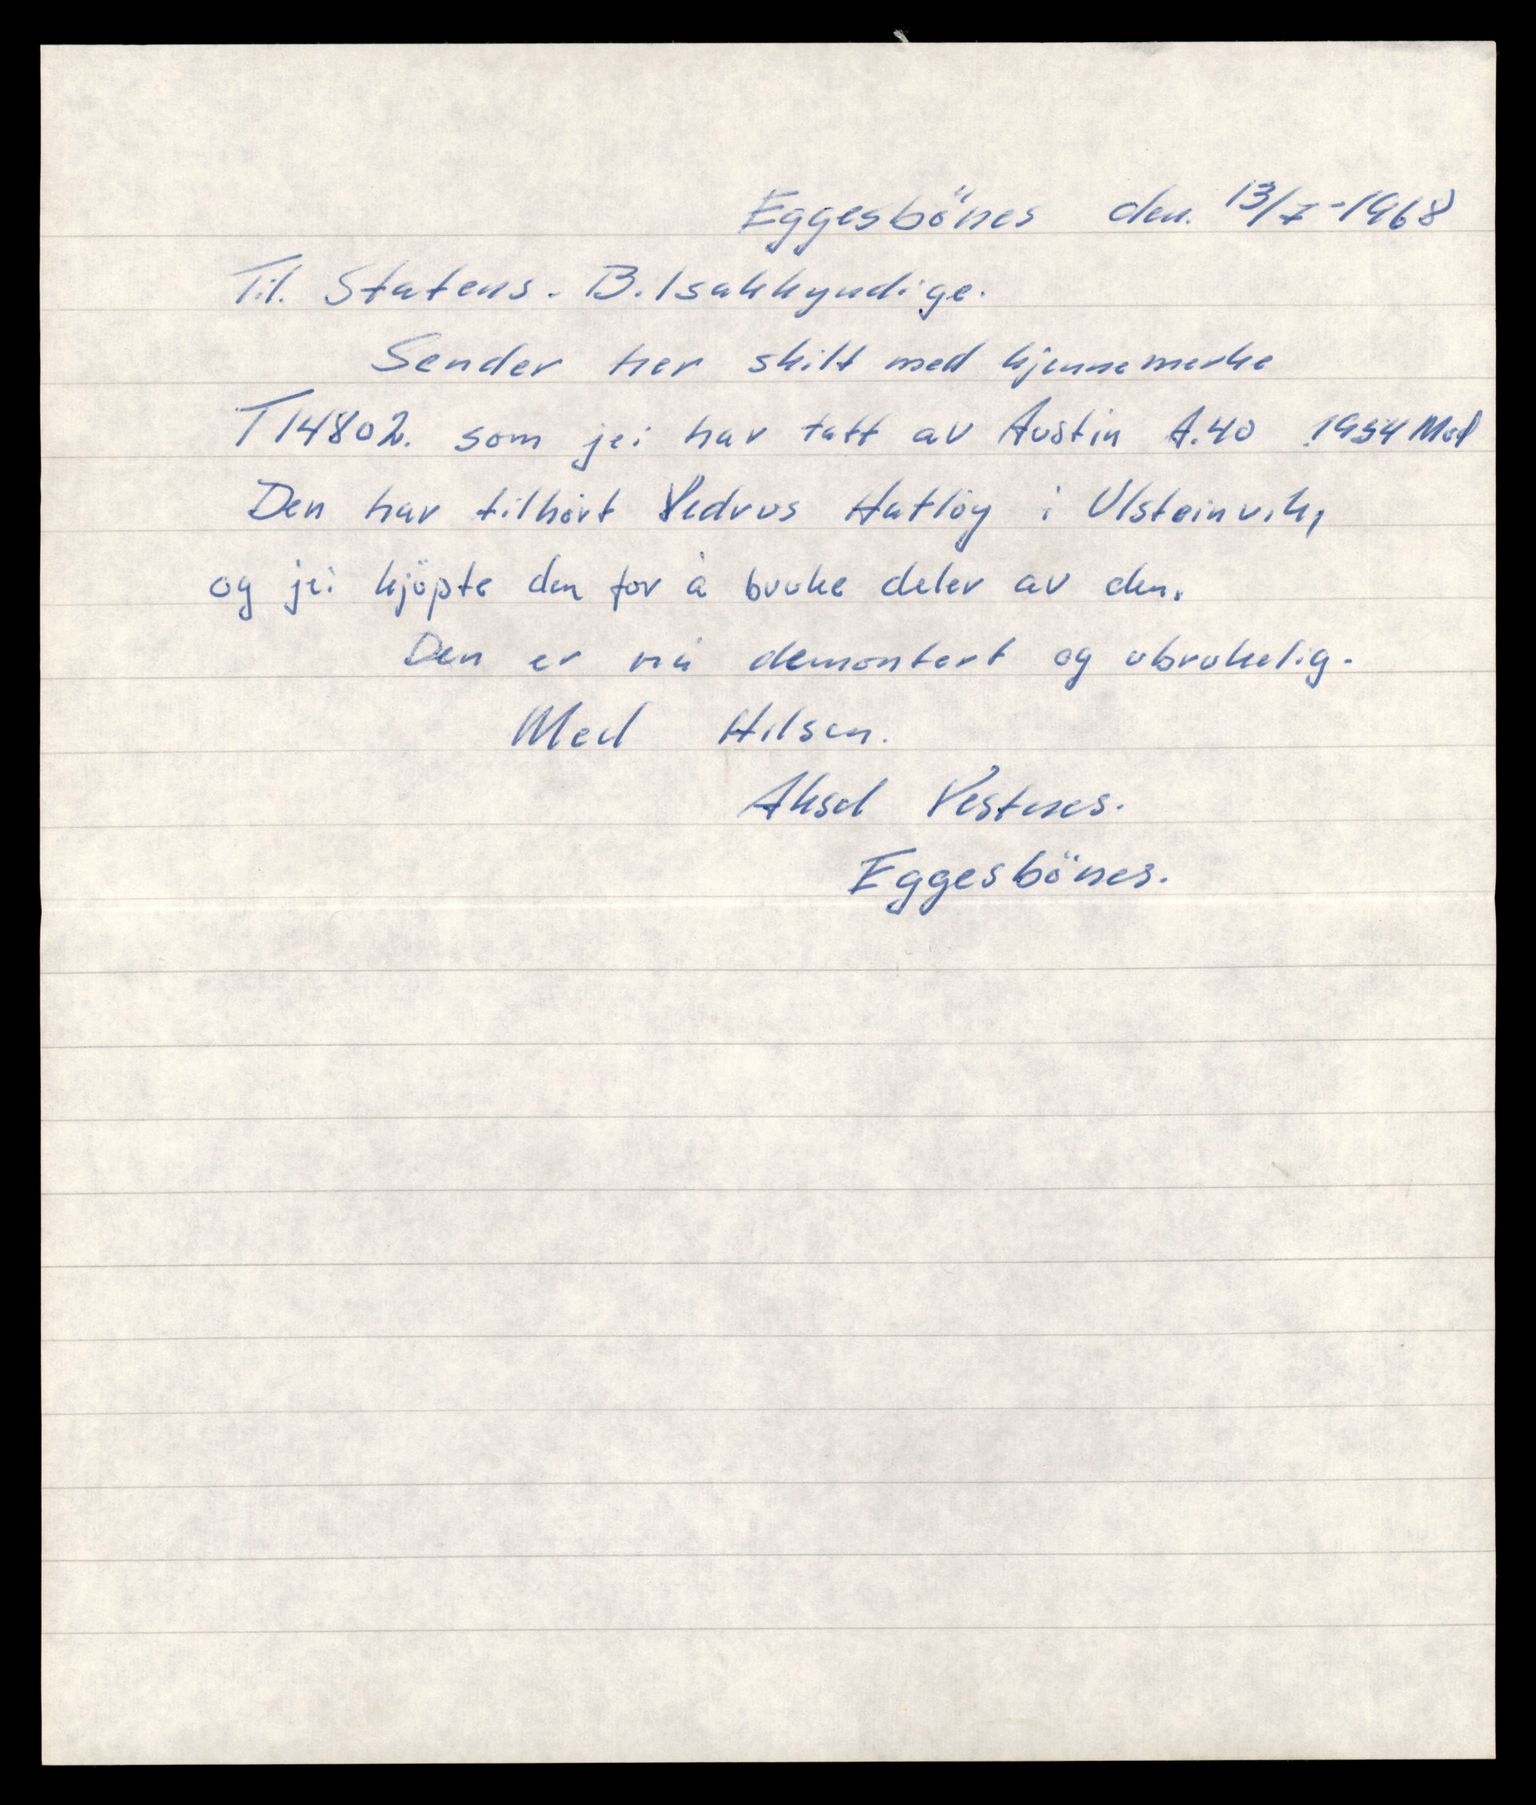 Eggesbönes den. 13/7-1968
Til. Statens. Bilsakkyndige.
Sender her skilt med kjennemerke
T14802. som jei har tatt av Austin A.40 1954 Mod
Den har tilhört Vedrus Hatlöy i Ulsteinvik,
og jei kjöpte den for å bruke deler av den.
Den er nå demontert og ubrukelig.
Med Hilsen.
Aksel Vestnes.
Eggesbönes.